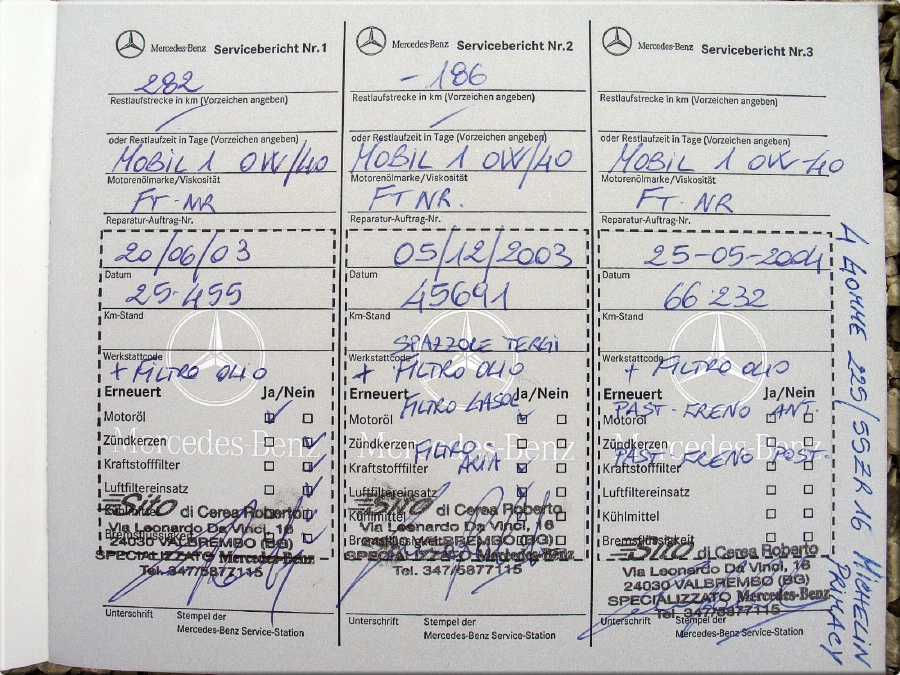 Mercedes-Benz Servicebericht Nr.1
282
Restlaufstrecke in km (Vorzeichen angeben)
oder Restlaufzeit in Tage (Vorzeichen angeben)
MOBIL 1 0W/40
Motorenölmarke/Viskosität
FT-NR
Reparatur-Auftrag-Nr.
20/06/03
Datum
25.455
Km-Stand
Werkstattcode
+ FILTRO OLIO
Erneuert Ja/Nein
Motoröl
Zündkerzen
Mercedes-Benz
Kraftstofffilter
Luftfiltereinsatz
Kühlmittel
Bremsflüssigkeit
Sito di Cerea Roberto
Via Leonardo Da Vinci, 16
24030 VALBREMBO (BG)
SPECIALIZZATO Mercedes-Benz
Tel. 347/5877115
Unterschrift Stempel der
Mercedes-Benz Service-Station
Mercedes-Benz Servicebericht Nr.2
-186
Restlaufstrecke in km (Vorzeichen angeben)
oder Restlaufzeit in Tage (Vorzeichen angeben)
MOBIL 1 0W/40
Motorenölmarke/Viskosität
FT NR.
Reparatur-Auftrag-Nr.
05/12/2003
Datum
45691
Km-Stand
SPAZZOLE TERGI
Werkstattcode
+ FILTRO OLIO
Erneuert Ja/Nein
FILTRO GASOL
Motoröl
Zündkerzen
Mercedes-Benz
FILTRO
ARIA
Kraftstofffilter
Luftfiltereinsatz
Kühlmittel
Bremsflüssigkeit
Sito di Cerea Roberto
Via Leonardo Da Vinci, 16
24030 VALBREMBO (BG)
SPECIALIZZATO Mercedes-Benz
Tel. 347/5877115
Unterschrift Stempel der
Mercedes-Benz Service-Station
Mercedes-Benz Servicebericht Nr.3
Restlaufstrecke in km (Vorzeichen angeben)
oder Restlaufzeit in Tage (Vorzeichen angeben)
MOBIL 1 0W-40
Motorenölmarke/Viskosität
FT-NR
Reparatur-Auftrag-Nr.
25-05-2004
Datum
66.232
Km-Stand
Werkstattcode
+ FILTRO OLIO
Erneuert Ja/Nein
PAST-FRENO ANT.
Motoröl
Zündkerzen
Mercedes-Benz
PAST-FRENO POST.
Kraftstofffilter
Luftfiltereinsatz
Kühlmittel
Bremsflüssigkeit
Sito di Cerea Roberto
Via Leonardo Da Vinci, 16
24030 VALBREMBO (BG)
SPECIALIZZATO Mercedes-Benz
Tel. 347/5877115
Unterschrift Stempel der
Mercedes-Benz Service-Station
4 GOMME 225/55ZR16 MICHELIN
PRIMACY